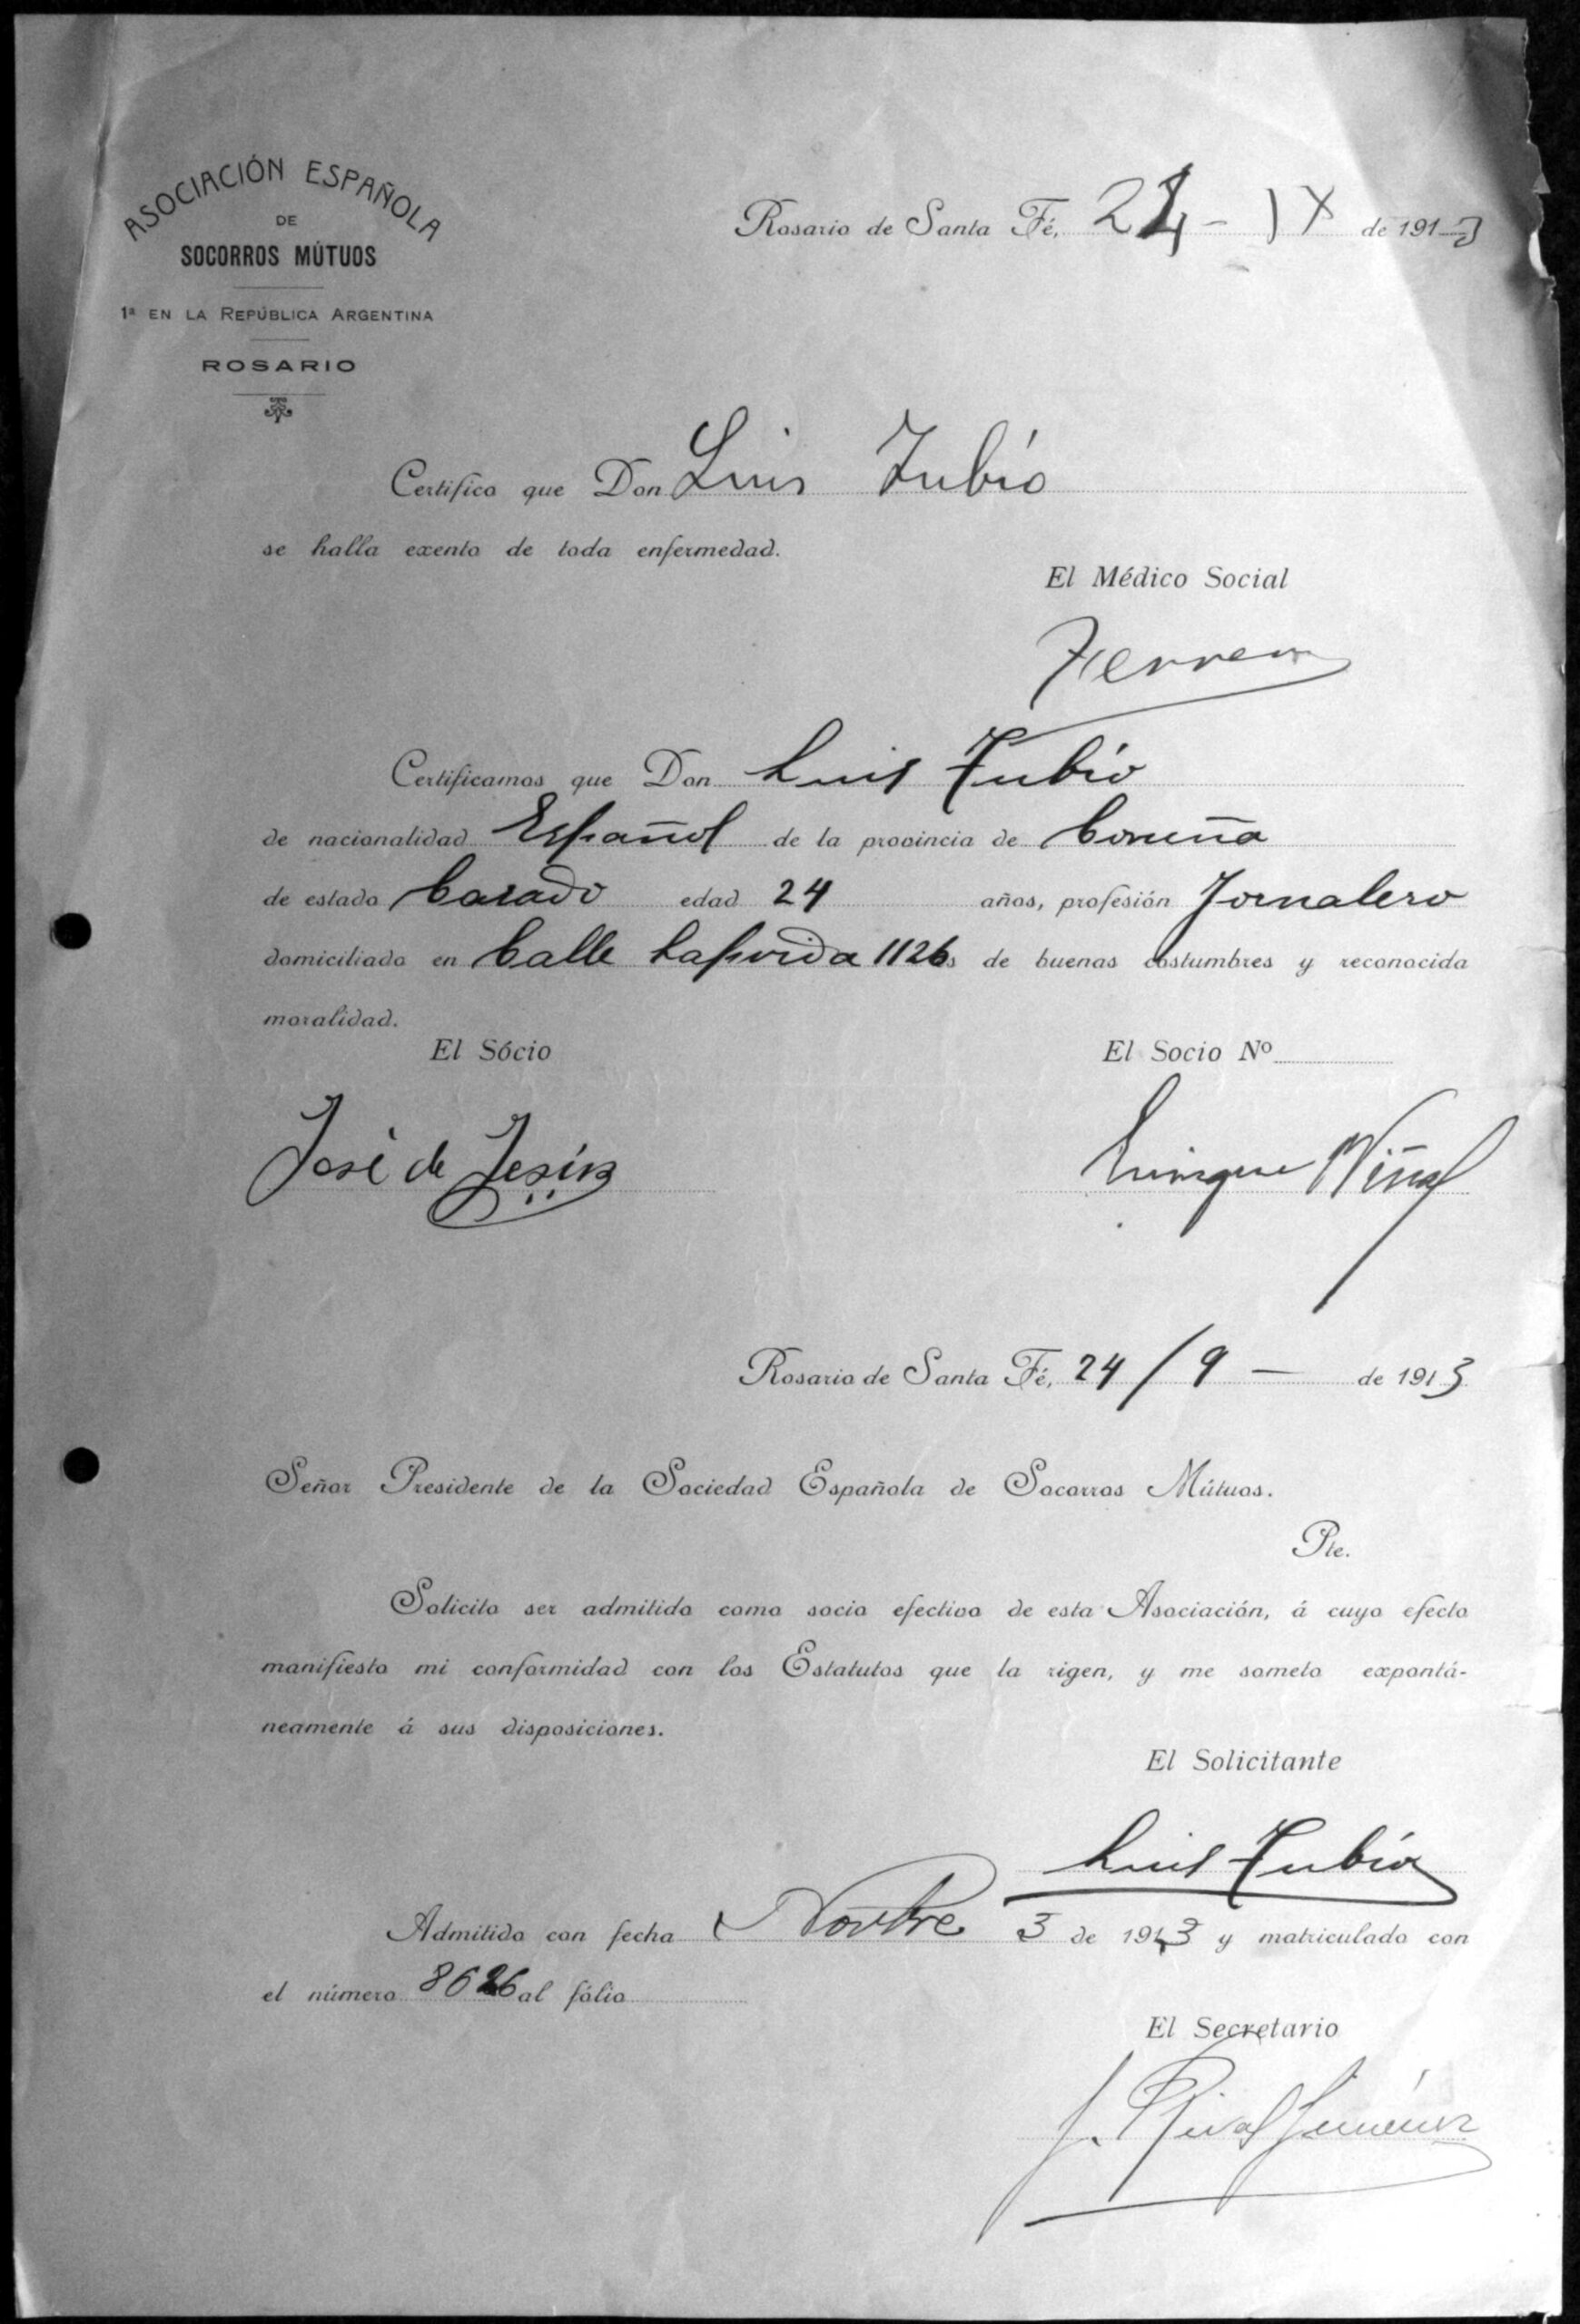 ASOCIACIÓN ESPAÑOLA
DE
SOCORROS MÚTUOS
1ª EN LA REPÚBLICA ARGENTINA
ROSARIO
Rosario de Santa Fé, 24 - IX de 1913
Certifico que Don Luis Tubío
se halla exento de toda enfermedad.
El Médico Social
Certificamos que Don Luis Tubío
de nacionalidad Español de la provincia de Coruña
de estado Casado edad 24 años, profesión Jornalero
domiciliado en Calle Laprida 1126 es de buenas costumbres y reconocida
moralidad.
El Sócio
El Socio Nº
José de Jesús
Enrique Viñal
Rosario de Santa Fé, 24/9 — de 1913
Señor Presidente de la Sociedad Española de Socorros Mútuos.
Pte.
Solicito ser admitido como socio efectivo de esta Asociación, á cuyo efecto
manifiesto mi conformidad con los Estatutos que la rigen, y me someto expontá-
neamente á sus disposiciones.
El Solicitante
Luis Tubío
Admitido con fecha Novbre 3 de 1913 y matriculado con
el número 8626 al fólio
El Secretario